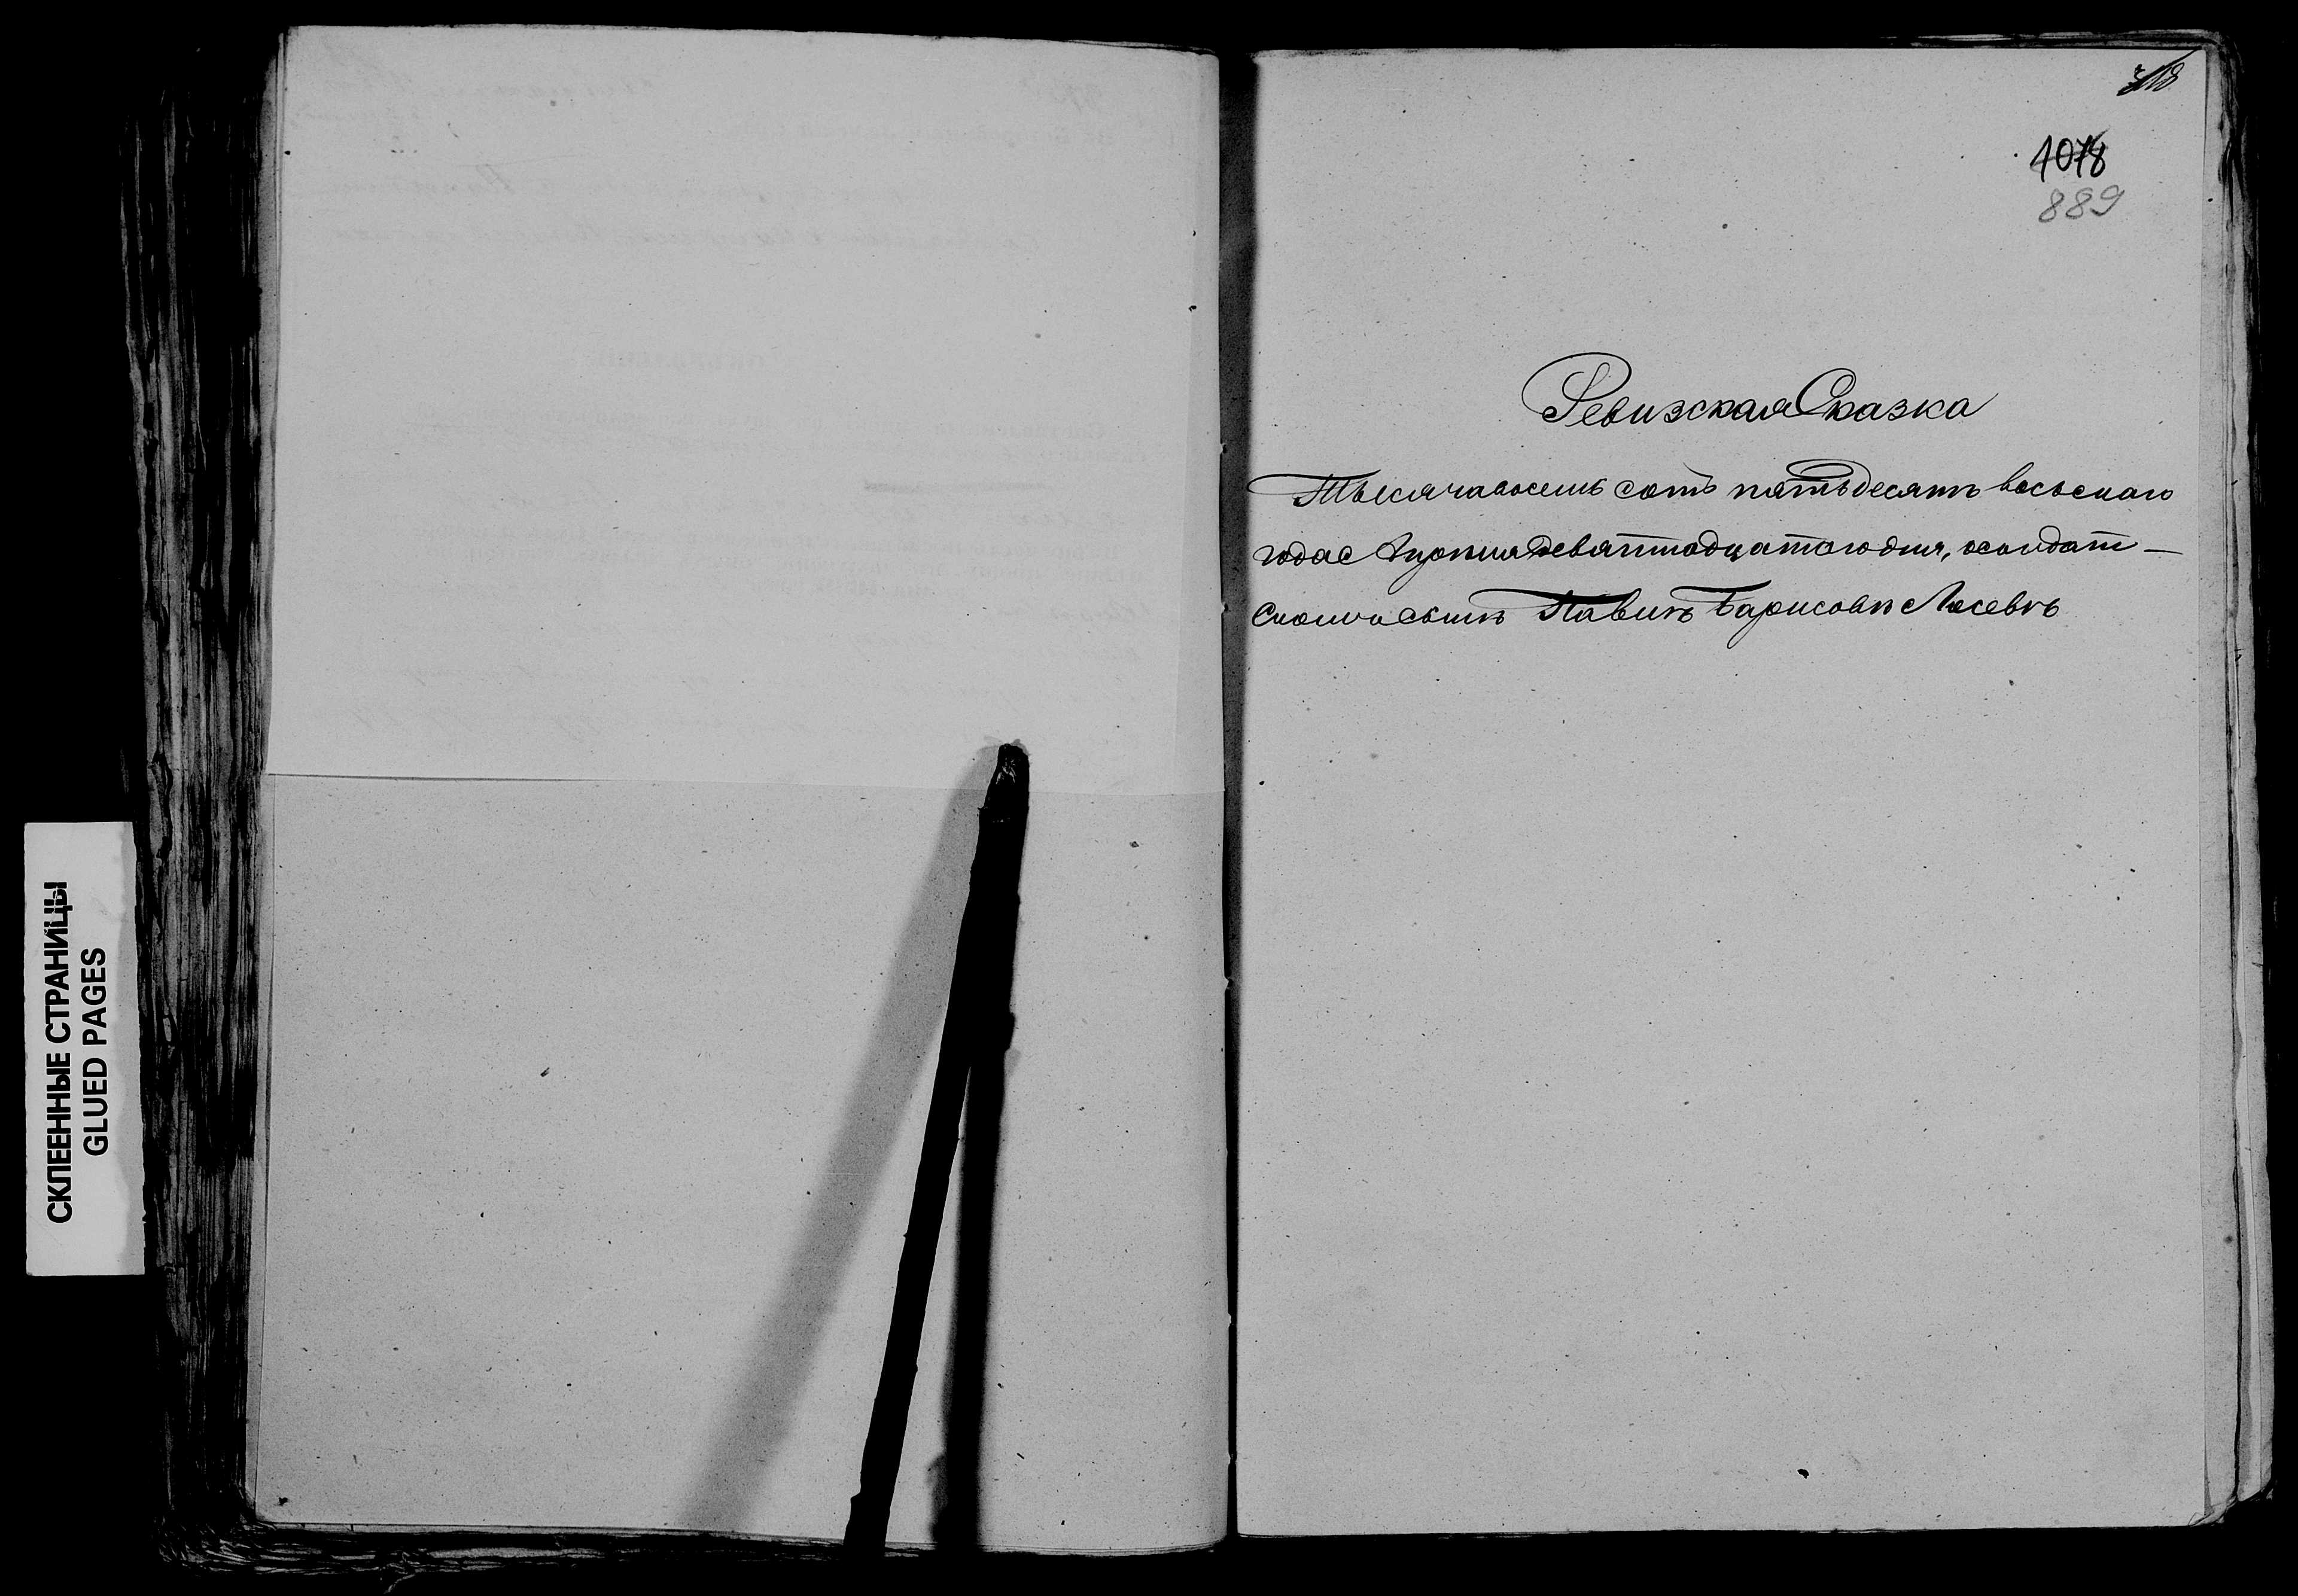 СКЛЕЕННЫЕ СТРАНИЦЫ
GLUED PAGES
1078
889
Ревизская Сказка
Тысяча восемь сотъ пятьдесятъ восьмаго
года Априля девятнадцатого дня, о солдат-
скомъ сынѣ Павилъ Барисовъ Лосевъ